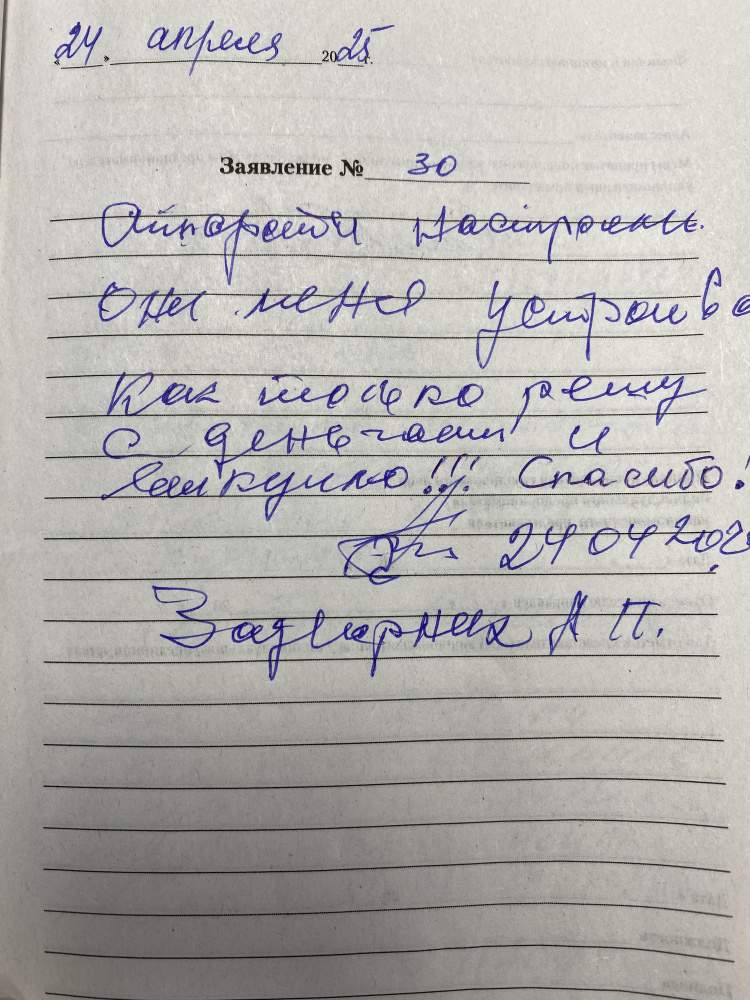 «24» апреля 2025 г.
Заявление № 30
Аппараты настроены.
Они меня устроива
Как только решу
с деньгами и
закуплю!!! Спасибо!
24 04 202
Задирних А П.